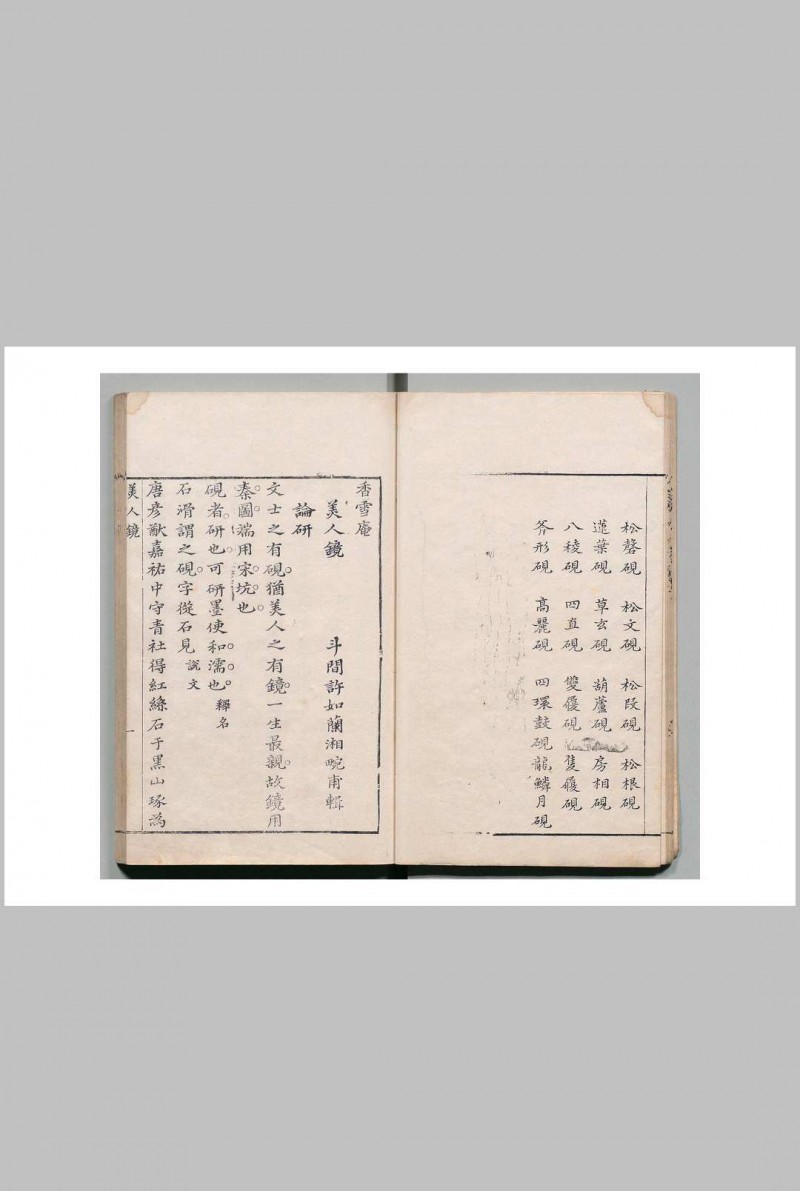 松磬硯 松文硯 松段硯 松根硯
蓮葉硯 草玄硯 葫蘆硯 房相硯
八稜硯 四直硯 雙履硯 隻履硯
斧形硯 高麗硯 四環鼓硯 龍鱗月硯
香雪庵
美人鏡 斗間許如蘭湘畹甫輯
論研
文士之有硯猶美人之有鏡一生最親故鏡用
秦圖湍用宋坑也
硯者研也可研墨使和濡也 釋名
石滑謂之硯字從石見 說文
唐彥猷嘉祐中守青社得紅絲石于黑山琢為
美人鏡 一